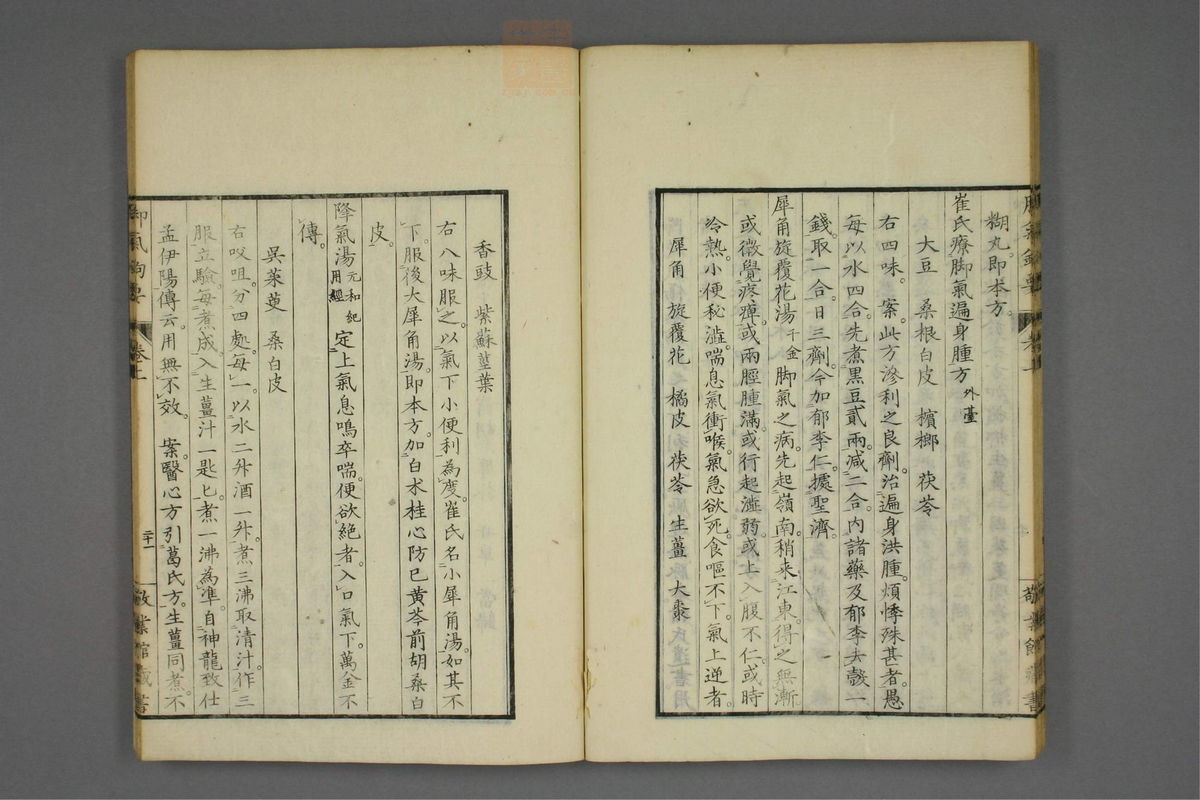 糊丸。即本方。
崔氏療脚氣遍身腫方 外臺
大豆 桑根白皮 檳榔 茯苓
右四味。案此方滲利之良劑。治遍身洪腫。煩悸殊甚者。愚
每以水四合。先煮黑豆貳兩。減二合。內諸藥及郁李去殼一
錢。取一合。日三劑。今加郁李仁。據聖濟。
犀角旋覆花湯 千金 脚氣之病。先起嶺南。稍來江東。得之無漸。
或微覺疼痺。或兩脛腫滿。或行起澁弱。或上入腹不仁。或時
冷熱。小便秘澁。喘息氣衝喉。氣急欲死。食嘔不下。氣上逆者。
犀角 旋覆花 橘皮 茯苓 生薑 大棗
香豉 紫蘇莖葉
右八味服之。以氣下小便利為度。崔氏名小犀角湯。如其不
下。服後大犀角湯。即本方。加白朮桂心防已黃芩前胡桑白
皮。
降氣湯 元和紀用經 定上氣息鳴卒喘。便欲絕者。入口氣下。萬金不
傳。
吳茱萸 桑白皮
右㕮咀。分四處。每一。以水二升酒一升。煮三沸。取清汁。作三
服。立驗。每煮成。入生薑汁一匙匕。煮一沸為準。自神龍致仕
孟伊陽傳云。用無不效。 案醫心方引葛氏方。生薑同煮。不
卷上
敬業館藏書